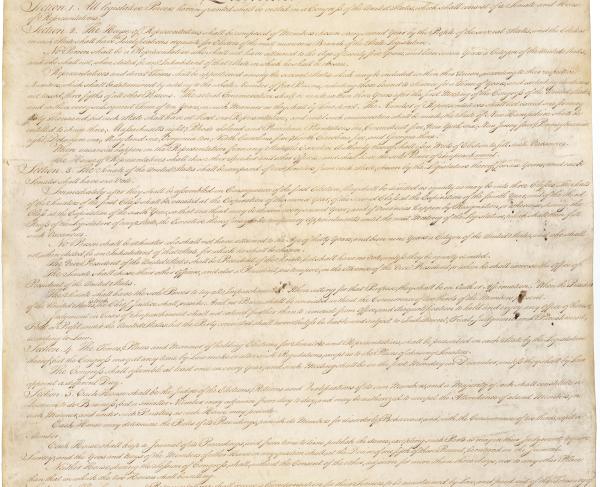 Section. 1. All legislative Powers herein granted shall be vested in a Congress of the United States, which shall consist of a Senate and House
of Representatives.
Section. 2. The House of Representatives shall be composed of Members chosen every second Year by the People of the several States, and the Electors
in each State shall have the Qualifications requisite for Electors of the most numerous Branch of the State Legislature.
No Person shall be a Representative who shall not have attained to the Age of twenty five Years, and been seven Years a Citizen of the United States,
and who shall not, when elected, be an Inhabitant of that State in which he shall be chosen.
Representatives and direct Taxes shall be apportioned among the several States which may be included within this Union, according to their respective
Numbers, which shall be determined by adding to the whole Number of free Persons, including those bound to Service for a Term of Years, and excluding Indians
not taxed, three fifths of all other Persons. The actual Enumeration shall be made within three Years after the first Meeting of the Congress of the United States,
and within every subsequent Term of ten Years, in such Manner as they shall by Law direct. The Number of Representatives shall not exceed one for every
thirty Thousand, but each State shall have at Least one Representative; and until such enumeration shall be made, the State of New Hampshire shall be
entitled to chuse three, Massachusetts eight,
When vacancies happen in the Representation from any State, the Executive Authority thereof shall issue Writs of Election to fill such Vacancies.
The House of Representatives shall chuse their Speaker and other Officers; and shall have the sole Power of Impeachment.
Section. 3. The Senate of the United States shall be composed of two Senators from each State, chosen by the Legislature thereof, for six Years; and each
Senator shall have one Vote.
Immediately after they shall be assembled in Consequence of the first Election, they shall be divided as equally as may be into three Classes. The Seats
of the Senators of the first Class shall be vacated at the Expiration of the second Year, of the second Class at the Expiration of the fourth Year, and of the third
Class at the Expiration of the sixth Year, so that one third may be chosen every second Year;
such Vacancies.
No Person shall be a Senator who shall not have attained to the Age of thirty Years, and been nine Years a Citizen of the United States, and who shall
not, when elected, be an Inhabitant of that State for which he shall be chosen.
The Vice President of the United States shall be President of the Senate, but shall have no Vote, unless they be equally divided.
The Senate shall chuse their other Officers, and also a President pro tempore, in the Absence of the Vice President, or when he shall exercise the Office of
President of the United States.
The Senate shall have the sole Power to try all Impeachments. When sitting for that Purpose, they shall be on Oath or Affirmation. When the President
of the United States is tried, the Chief Justice shall preside: And no Person shall be convicted without the Concurrence of two thirds of the Members present.
Judgment in Cases of Impeachment shall not extend further than to removal from Office, and disqualification to hold and enjoy any Office of honor,
Trust or Profit under the United States: but the Party convicted shall nevertheless be liable and subject to Indictment, Trial, Judgment and Punishment,
according to Law.
Section. 4. The Times, Places and Manner of holding Elections for Senators and Representatives, shall be prescribed in each State by the Legislature
thereof; but the Congress may at any time by Law make or alter such Regulations, except as to the Places of chusing Senators.
The Congress shall assemble at least once in every Year, and such Meeting shall be on the first Monday in December, unless they shall by Law
appoint a different Day.
Section. 5. Each House shall be the Judge of the Elections, Returns and Qualifications of its own Members, and a Majority of each shall constitute a
Quorum to do Business; but a smaller Number may adjourn from day to day, and may be authorized to compel the Attendance of absent Members, in
such Manner, and under such Penalties as each House may provide.
Each House may determine the Rules of its Proceedings, punish its Members for disorderly Behaviour, and, with the Concurrence of two thirds, expel a
Member.
Each House shall keep a Journal of its Proceedings, and from time to time publish the same, excepting such Parts as may in their Judgment require
Secrecy; and the Yeas and Nays of the Members of either House on any question shall, at the Desire of one fifth of those Present, be entered on the Journal.
Neither House, during the Session of Congress, shall, without the Consent of the other, adjourn for more than three days, nor to any other Place
than that in which the two Houses shall be sitting.